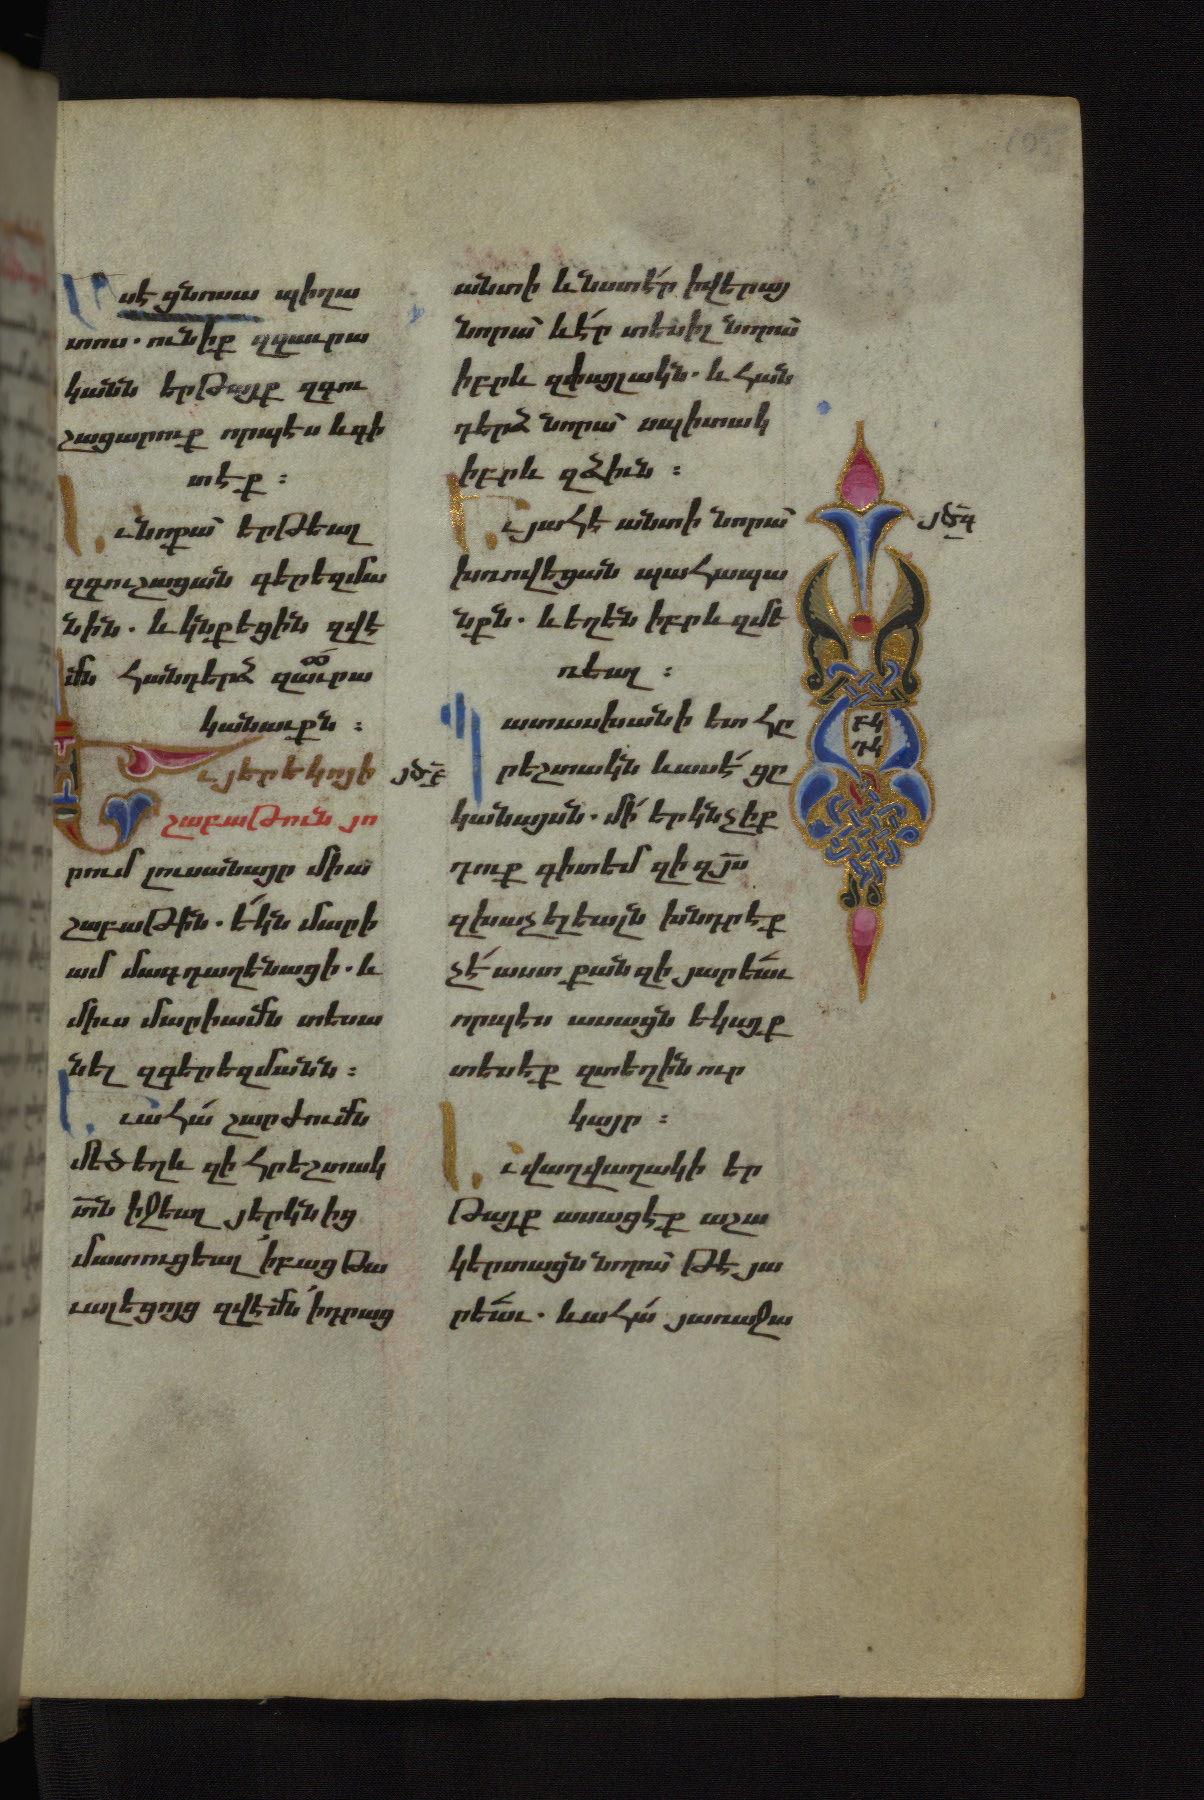 Ասէ ցնոսա պիղա
տոս. ունիք զզաւրա
կանն երթայք զգու
շացարուք որպէս և գի
տէք :
Եւ նոքա՝ երթեալ
զգուշացան գերեզմա
նին. և կնքեցին զվէ
մն հանդերձ զաւրա
կանաւքն :
Եւ յերեկոյի յծ̅բ
շաբաթուն յո
րում լուսանայր միա
շաբաթին. ե՛կն մարի
ամ մագդաղենացի. և
միւս մարիամն տեսա
նել զգերեզմանն :
Եւ ահա՛ շարժումն
մեծ եղև զի հրեշտակ
տ̅ն իջեալ յերկնից
մատուցեալ ՛ի բաց թա
ւալեցոյց զվէմն ՛ի դրաց
անտի և նստէ՛ր ի վերայ
նորա՝ և է՛ր տեսիլ նորա՝
իբրև զփայլակն. և հան
դերձ նորա՝ սպիտակ
իբրև զձիւն :
Եւ յահէ անտի նորա՝ յծ̅գ
խռովեցան պահապա
նքն. և եղեն իբրև զմե
ռեալ :
Պատասխանի ետ հր
րեշտակն և ասէ՛ ցր
կանայսն. մի՛ երկնչիք
դուք գիտեմ զի զյ̅ս
զխաչելեալն խնդրէք
չէ՛ աստ քանզի յարեա՛ւ
որպէս ասացն եկայք
տեսէք զտեղին ուր
կայր :
Եւ վաղվաղակի եր
թայք ասացէք աշա
կերտացն նորա՝ թէ յա
րեա՛ւ. և ահա՛ յառաջա
բկ
դկ